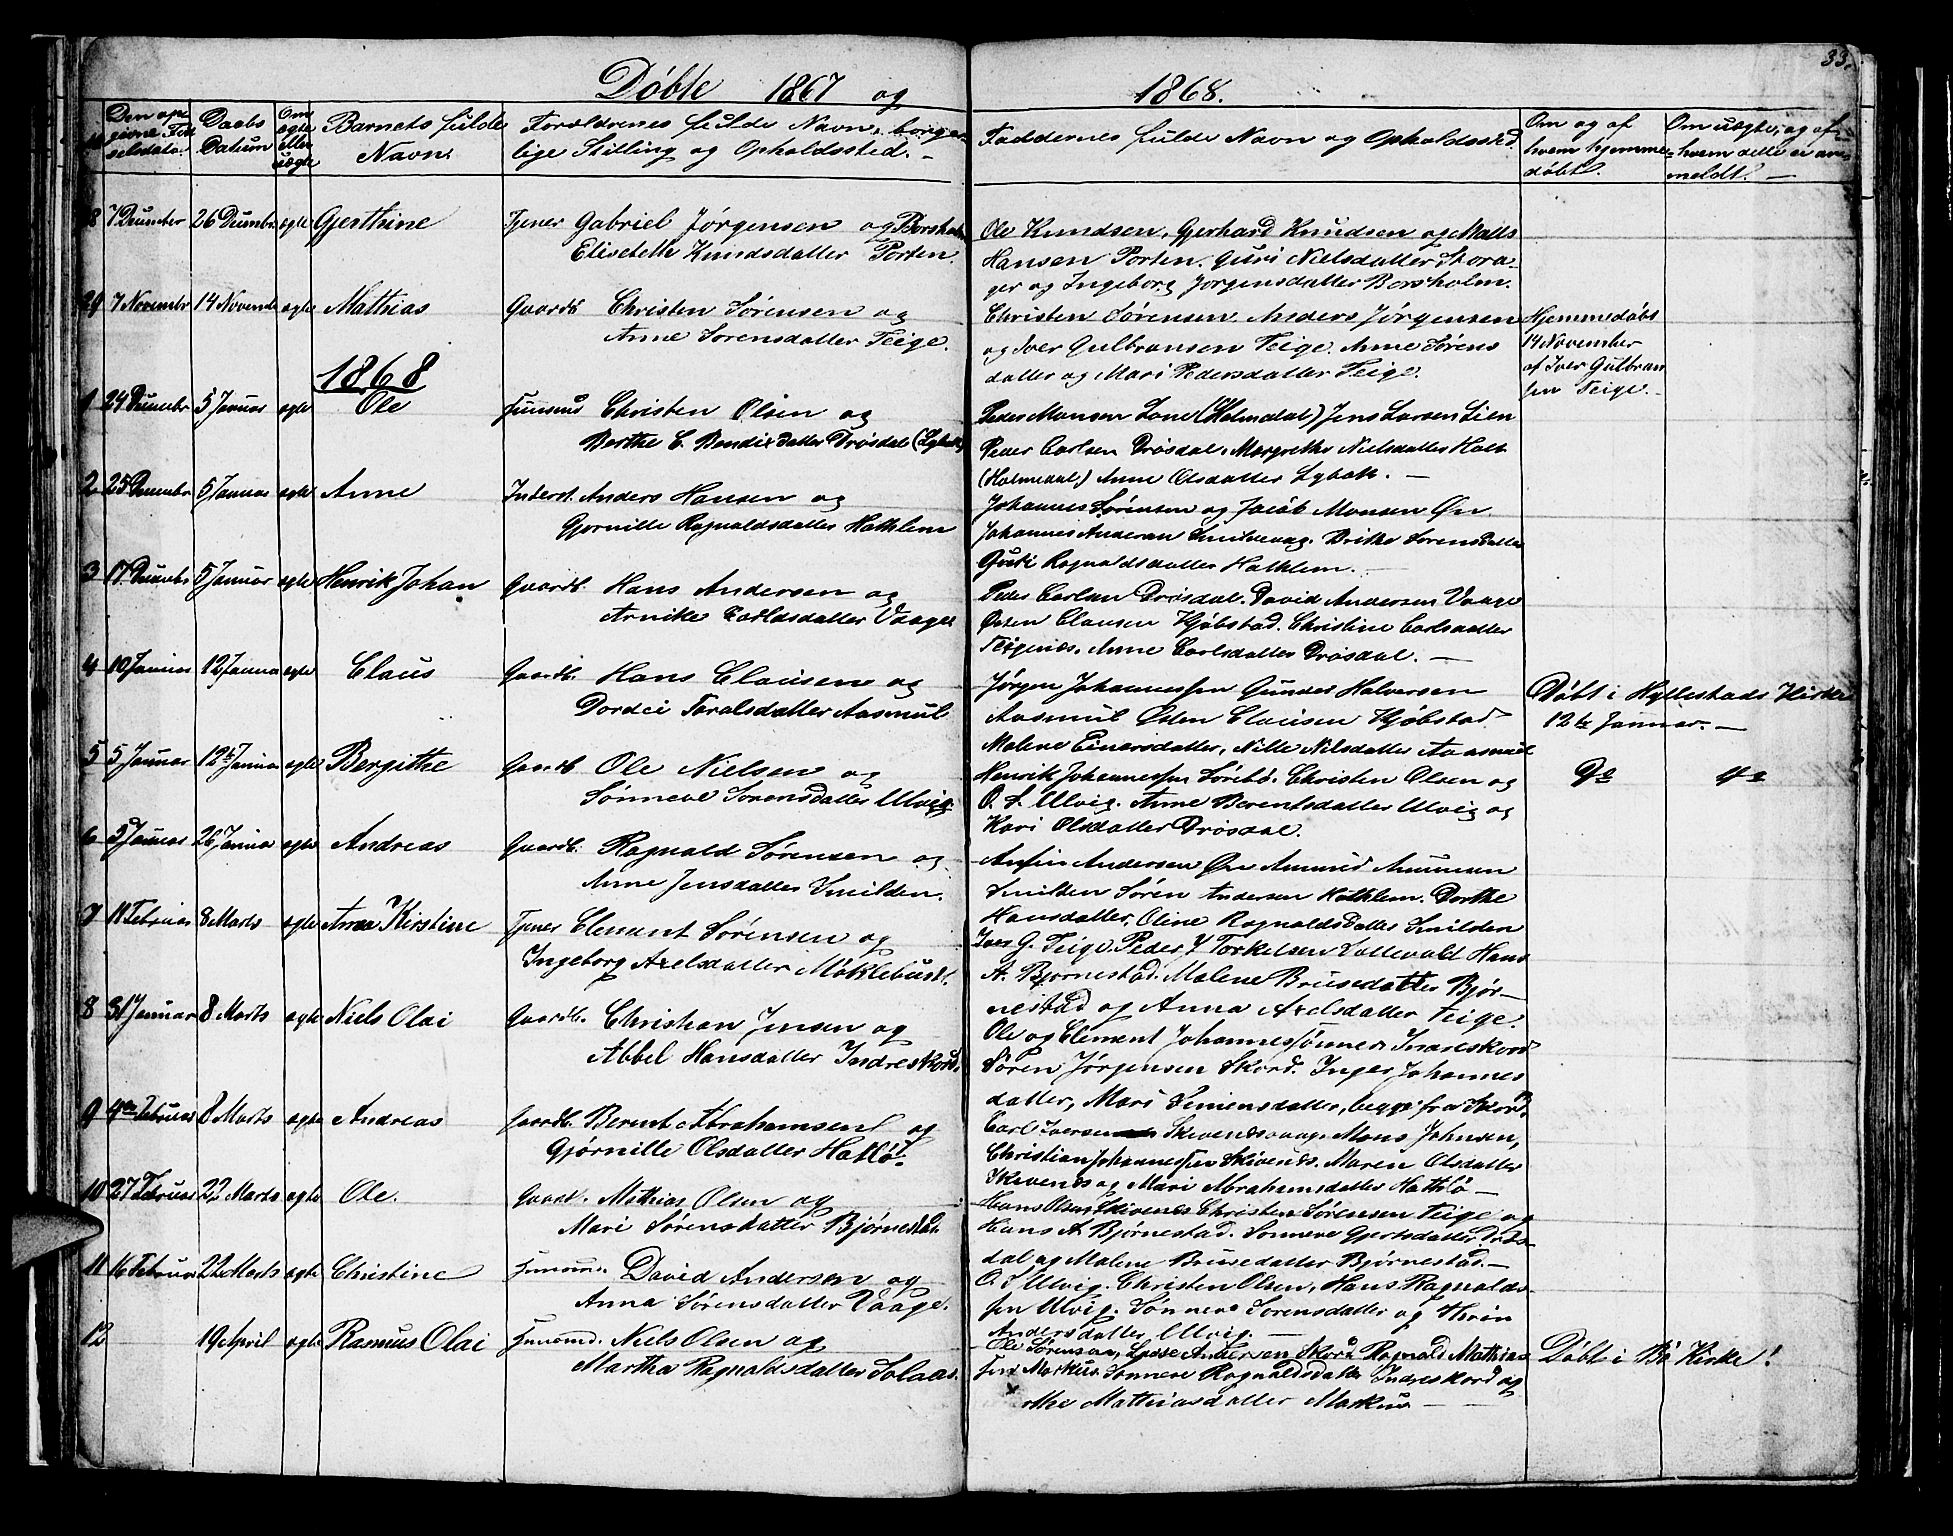 33.
Døbte 1867 og 1868.
Den opgivne Fødselsdato. Daabs Datum Om ægte eller uægte Barnets fulde Navn. Forældrenes fulde Navn, borgerlige Stilling og Opholdssted. Faddernes fulde Navn og Opholdssted Om og af hvem hjemmedøbt. Om uægte, og af hvem dette er anmeldt.
8 7 December 26 Decembr ægte Gjerthine Tjener Gabriel Jørgensen og Borsholm
Elisebeth Knudsdatter Porten.
Ole Knudsen, Gjerhard Knudsen og Mads
Hansen Porten. Guri Nielsdatter
og Ingeborg Jørgensdatter Borsholm.
29 7 Novembr 14 Novembe ægte Mathias Gaardb Christen Sørensen og
Anne Sørensdatter Teige.
Christen Sørensen. Anders Jørgensen
og Iver Gulbransen Teige. Anne Sørens
datter og Mari Pedersdatter Teige.
Hjemmedøbt
14 November
af Iver Gulbran
sen Teige.
1868
1 24 Decembr 5 Januar ægte Ole Christen Olsen og
Berthe C. Bendixdatter Drøsdal
Peder Monsen Lone (Holmedal) Jens Larsen Lien
Peder Carlsen Drøsdal. Margrethe Nielsdatter Holt
(Holmedal) Anne Olsdatter
2 25 Decembr 5 Januar ægte Anne Inderst. Anders Hansen og
Gjørnille Ragnaldsdatter Hathlem
Johannes Sørensen og Jacob Monsen Øn
Johannes Andersen Brithe Sørensdatter
Ragnaldsdatter Hathlem.
3 17 Decembr 5 Januar ægte Henrik Johan Gaardb. Hans Andersen og
Arnike Carlsdatter Vaage
Peder Carlsen Drøsdal. David Andersen Vaage
Østen Clausen Hjøbstad. Christine Carlsdatter
Teigenes. Anne Carlsdatter Drøsdal.
4 10 Januar 12 Januar ægte Claus Gaardb. Hans Clausen og
Dordei Taralsdatter Aasmul
Jørgen Johannessen Gunder Halvorsen
Aasmul Østen Clausen Hjøbstad
Malene Einarsdatter, Nille Nilsdatter Aasmul
Døbt i Hyllestads Kirke
12te Januar.
5 5 Januar 12te Januar ægte Bergithe Gaardb Ole Nielsen og
Sønneve Sørensdatter Ulvig.
Henrik Johannessen Sørebø. Christen Olsen og
O. S. Ulvig. Anne Berentsdatter Ulvig og
Kari Olsdatter Drøsdal.
Do do
6 5 Januar 26 Januar ægte Andreas Gaardb. Ragnald Sørensen og
Anne Jensdatter Smilden.
Anfin Andersen Øn Amund Amunsen
Smilden Søren Andersen Hathlem. Dorthe
Hansdatter, Oline Ragnaldsdatter Smilden
7 11 Februar 8 Marts ægte Anna Kirstine Tjener Clement Sørensen og
Ingeborg Axelsdatter Møklebust.
Iver G. Teige. Peder T. Torkelsen Sollevold Hans
A. Bjørnestad. Malene Brusedatter Bjør-
nestad og Anna Axelsdatter Teige.
8 31 Januar 8 Marts ægte Niels Olai Gaardb. Christian Jensen og
Abbel Hansdatter Indreskord.
Ole og Clement Johannessønner Indreskord
Søren Jørgensen Skord. Inger Johannes
datter, Mari Simensdatter, begge fra Skord
9 4de Februar 8 Marts ægte Andreas Gaardb. Bernt Abrahamsen og
Gjørnille Olsdatter Hatlø.
Carl Iversen Mons Johnsen,
Christian Johannessen Skivenes. Maren Olsdatter
Skivenes og Mari Abrahamsdatter Hattlø
10 27 Februar 22 Marts ægte Ole. Gaardb. Mathias Olsen og
Mari Sørensdatter Bjørnestad.
Hans Olsen Skivenes Christen Sørensen Teige og
Hans A Bjørnestad. Sønneve Gjertsdatter Drøs-
dal og Malene Brusedatter Bjørnestad.
11 16 Februar 22 Marts ægte Christine David Andersen og
Anna Sørensdatter Vaage.
O. S Ulvig. Christen Olsen, Hans Ragnalds-
sen Ulvig. Sønneve Sørensdatter og
Andersdatter Ulvig.
12 19 April ægte Rasmus Olai Niels Olsen og
Martha Ragnaldsdatter Solaas.
Ole Sørensen, Lasse Andersen Skord Ragnald Mathias
sen Markus Sønneve Ragnaldsdatter Indreskord og
Mathiasdatter Markus
Døbt i Bø Kirke!